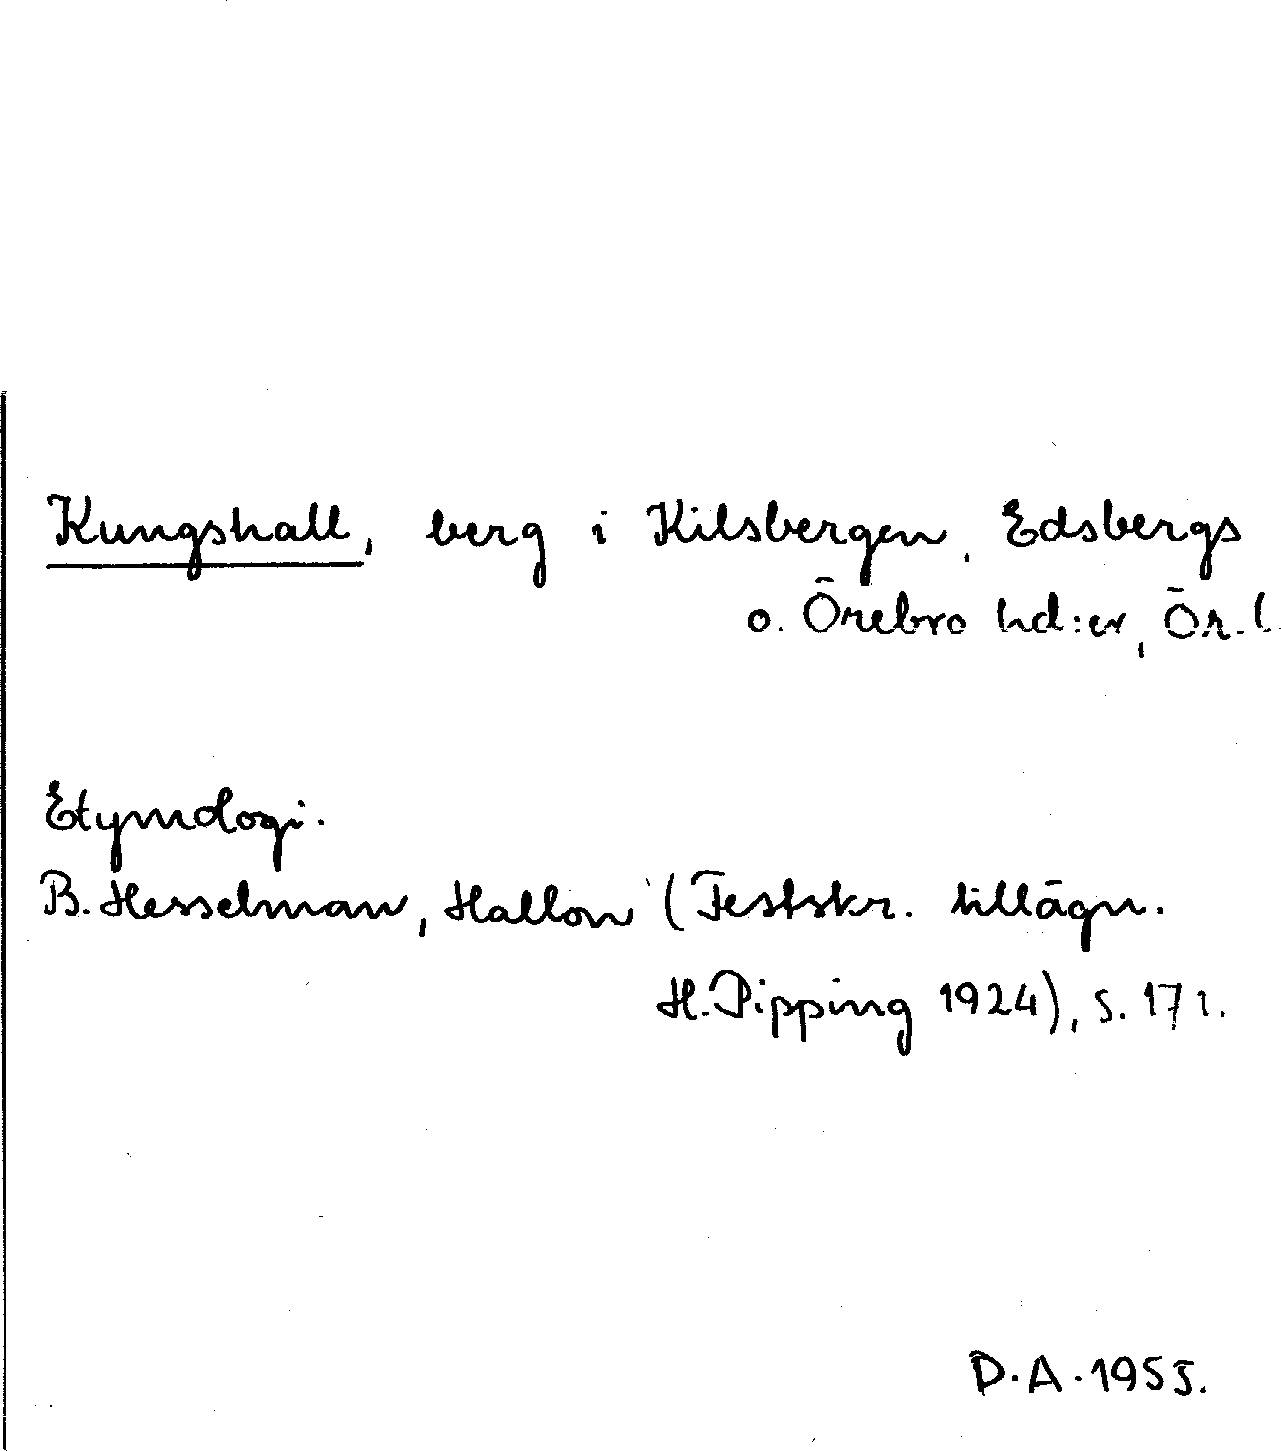 Kungshall, berg i Kilsbergen, Edsbergs
o. Örebro hd:er, Ör. l
Etymologi.
B. Hesselman, Hallon (Festskr. tillägn.
H. Pipping 1924), s. 171.
D.A. 1955.